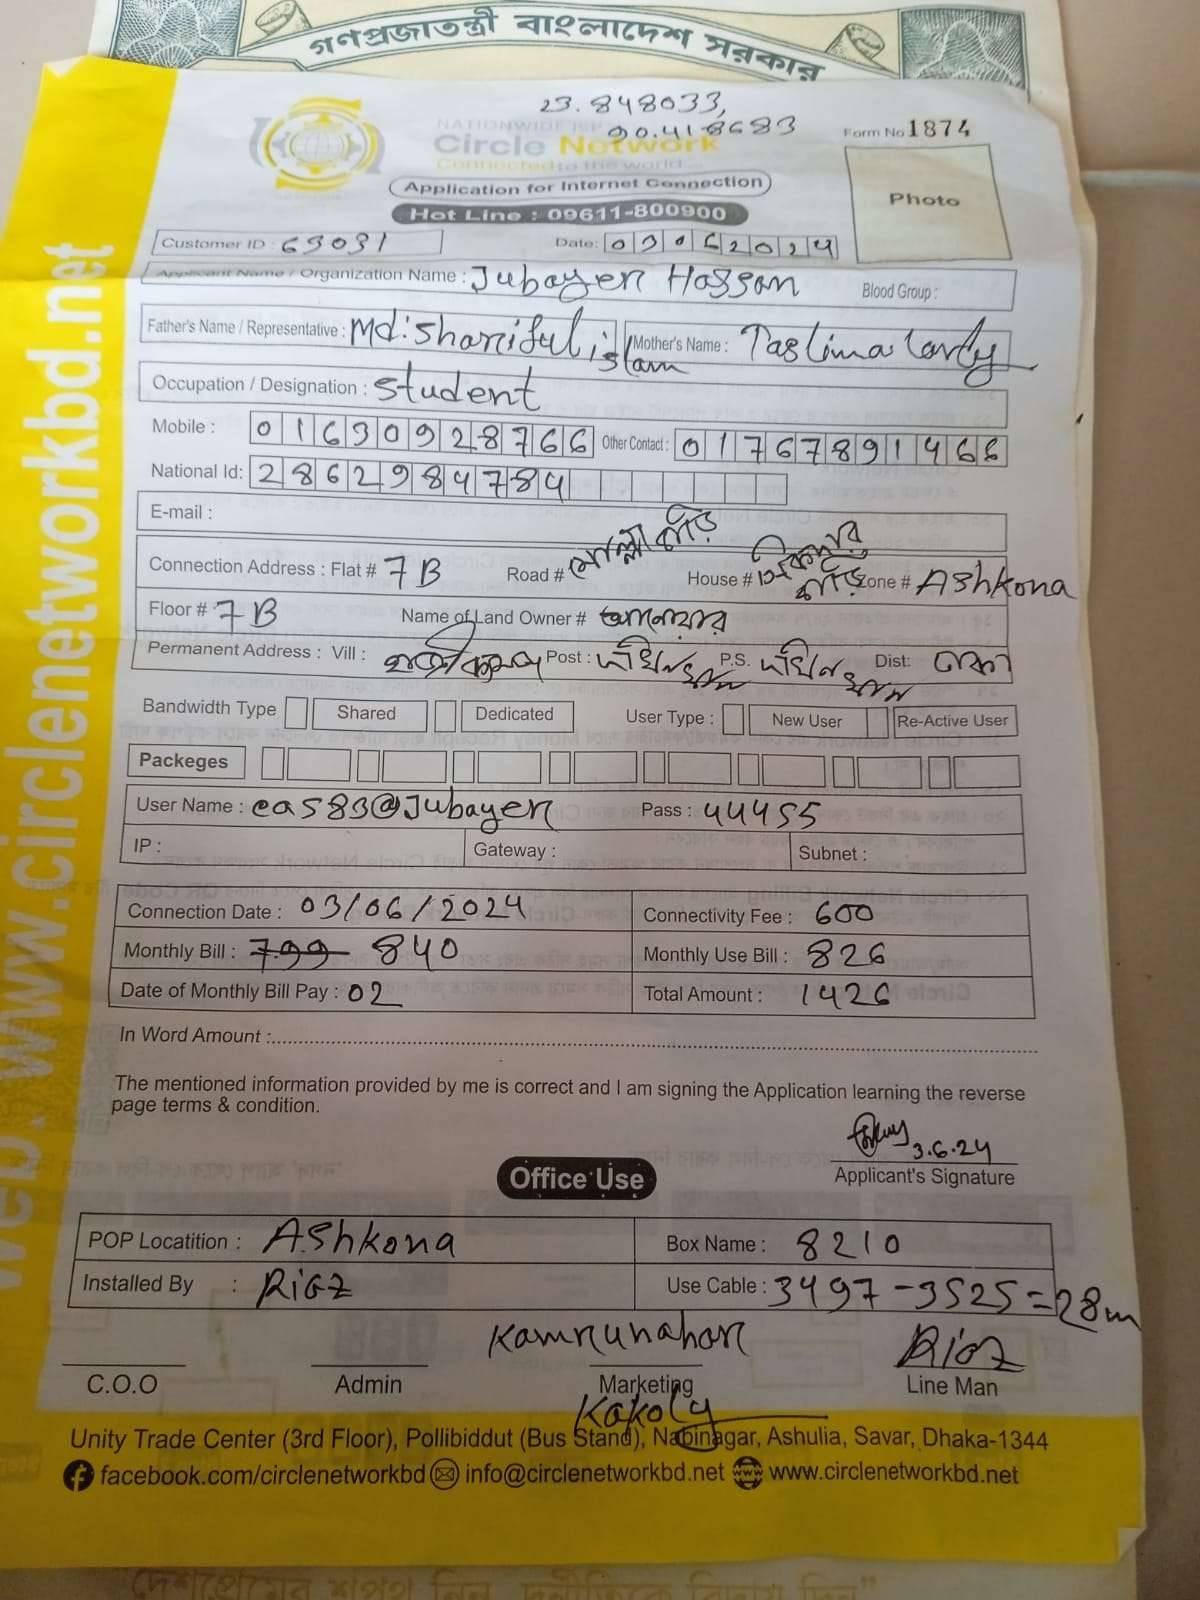 গণপ্রজাতন্ত্রী বাংলাদেশ সরকার
23.848033,
90.418683
NATIONWIDE ISP
Circle Network
Connected to the world
Form No 1874
Application for Internet Connection
Photo
Hot Line : 09611-800900
Customer ID : 63031 Date: 03062024
Applicant Name / Organization Name : Jubayer Hassan Blood Group :
Father's Name / Representative : Md: Shariful islam Mother's Name : Taslima
Occupation / Designation : Student
Mobile : 01630928766 Other Contact : 01767891466
National Id: 2862984784
E-mail :
Connection Address : Flat # 7B Road # House # Zone # Ashkona
Floor # 7B Name of Land Owner # আনোয়ার
Permanent Address : Vill : Post : P.S. Dist: ঢাকা
Bandwidth Type Shared Dedicated User Type : New User Re-Active User
Packeges
User Name : eas83@Jubayer Pass : 44455
IP : Gateway : Subnet :
Connection Date : 03/06/2024 Connectivity Fee : 600
Monthly Bill : 799 840 Monthly Use Bill : 826
Date of Monthly Bill Pay : 02 Total Amount : 1426
In Word Amount :
The mentioned information provided by me is correct and I am signing the Application learning the reverse
page terms & condition.
3.6.24
Applicant's Signature
Office Use
POP Locatition : Ashkona Box Name : 8210
Installed By : Riaz Use Cable : 3497 - 3525 = 28m
Kamrunahar Riaz
C.O.O Admin Marketing Line Man
Kakoly
Unity Trade Center (3rd Floor), Pollibiddut (Bus Stand), Nabinagar, Ashulia, Savar, Dhaka-1344
facebook.com/circlenetworkbd info@circlenetworkbd.net www.circlenetworkbd.net
Web: www.circlenetworkbd.net
দেশপ্রেমের শপথ নিন, দুর্নীতিকে বিদায় দিন"